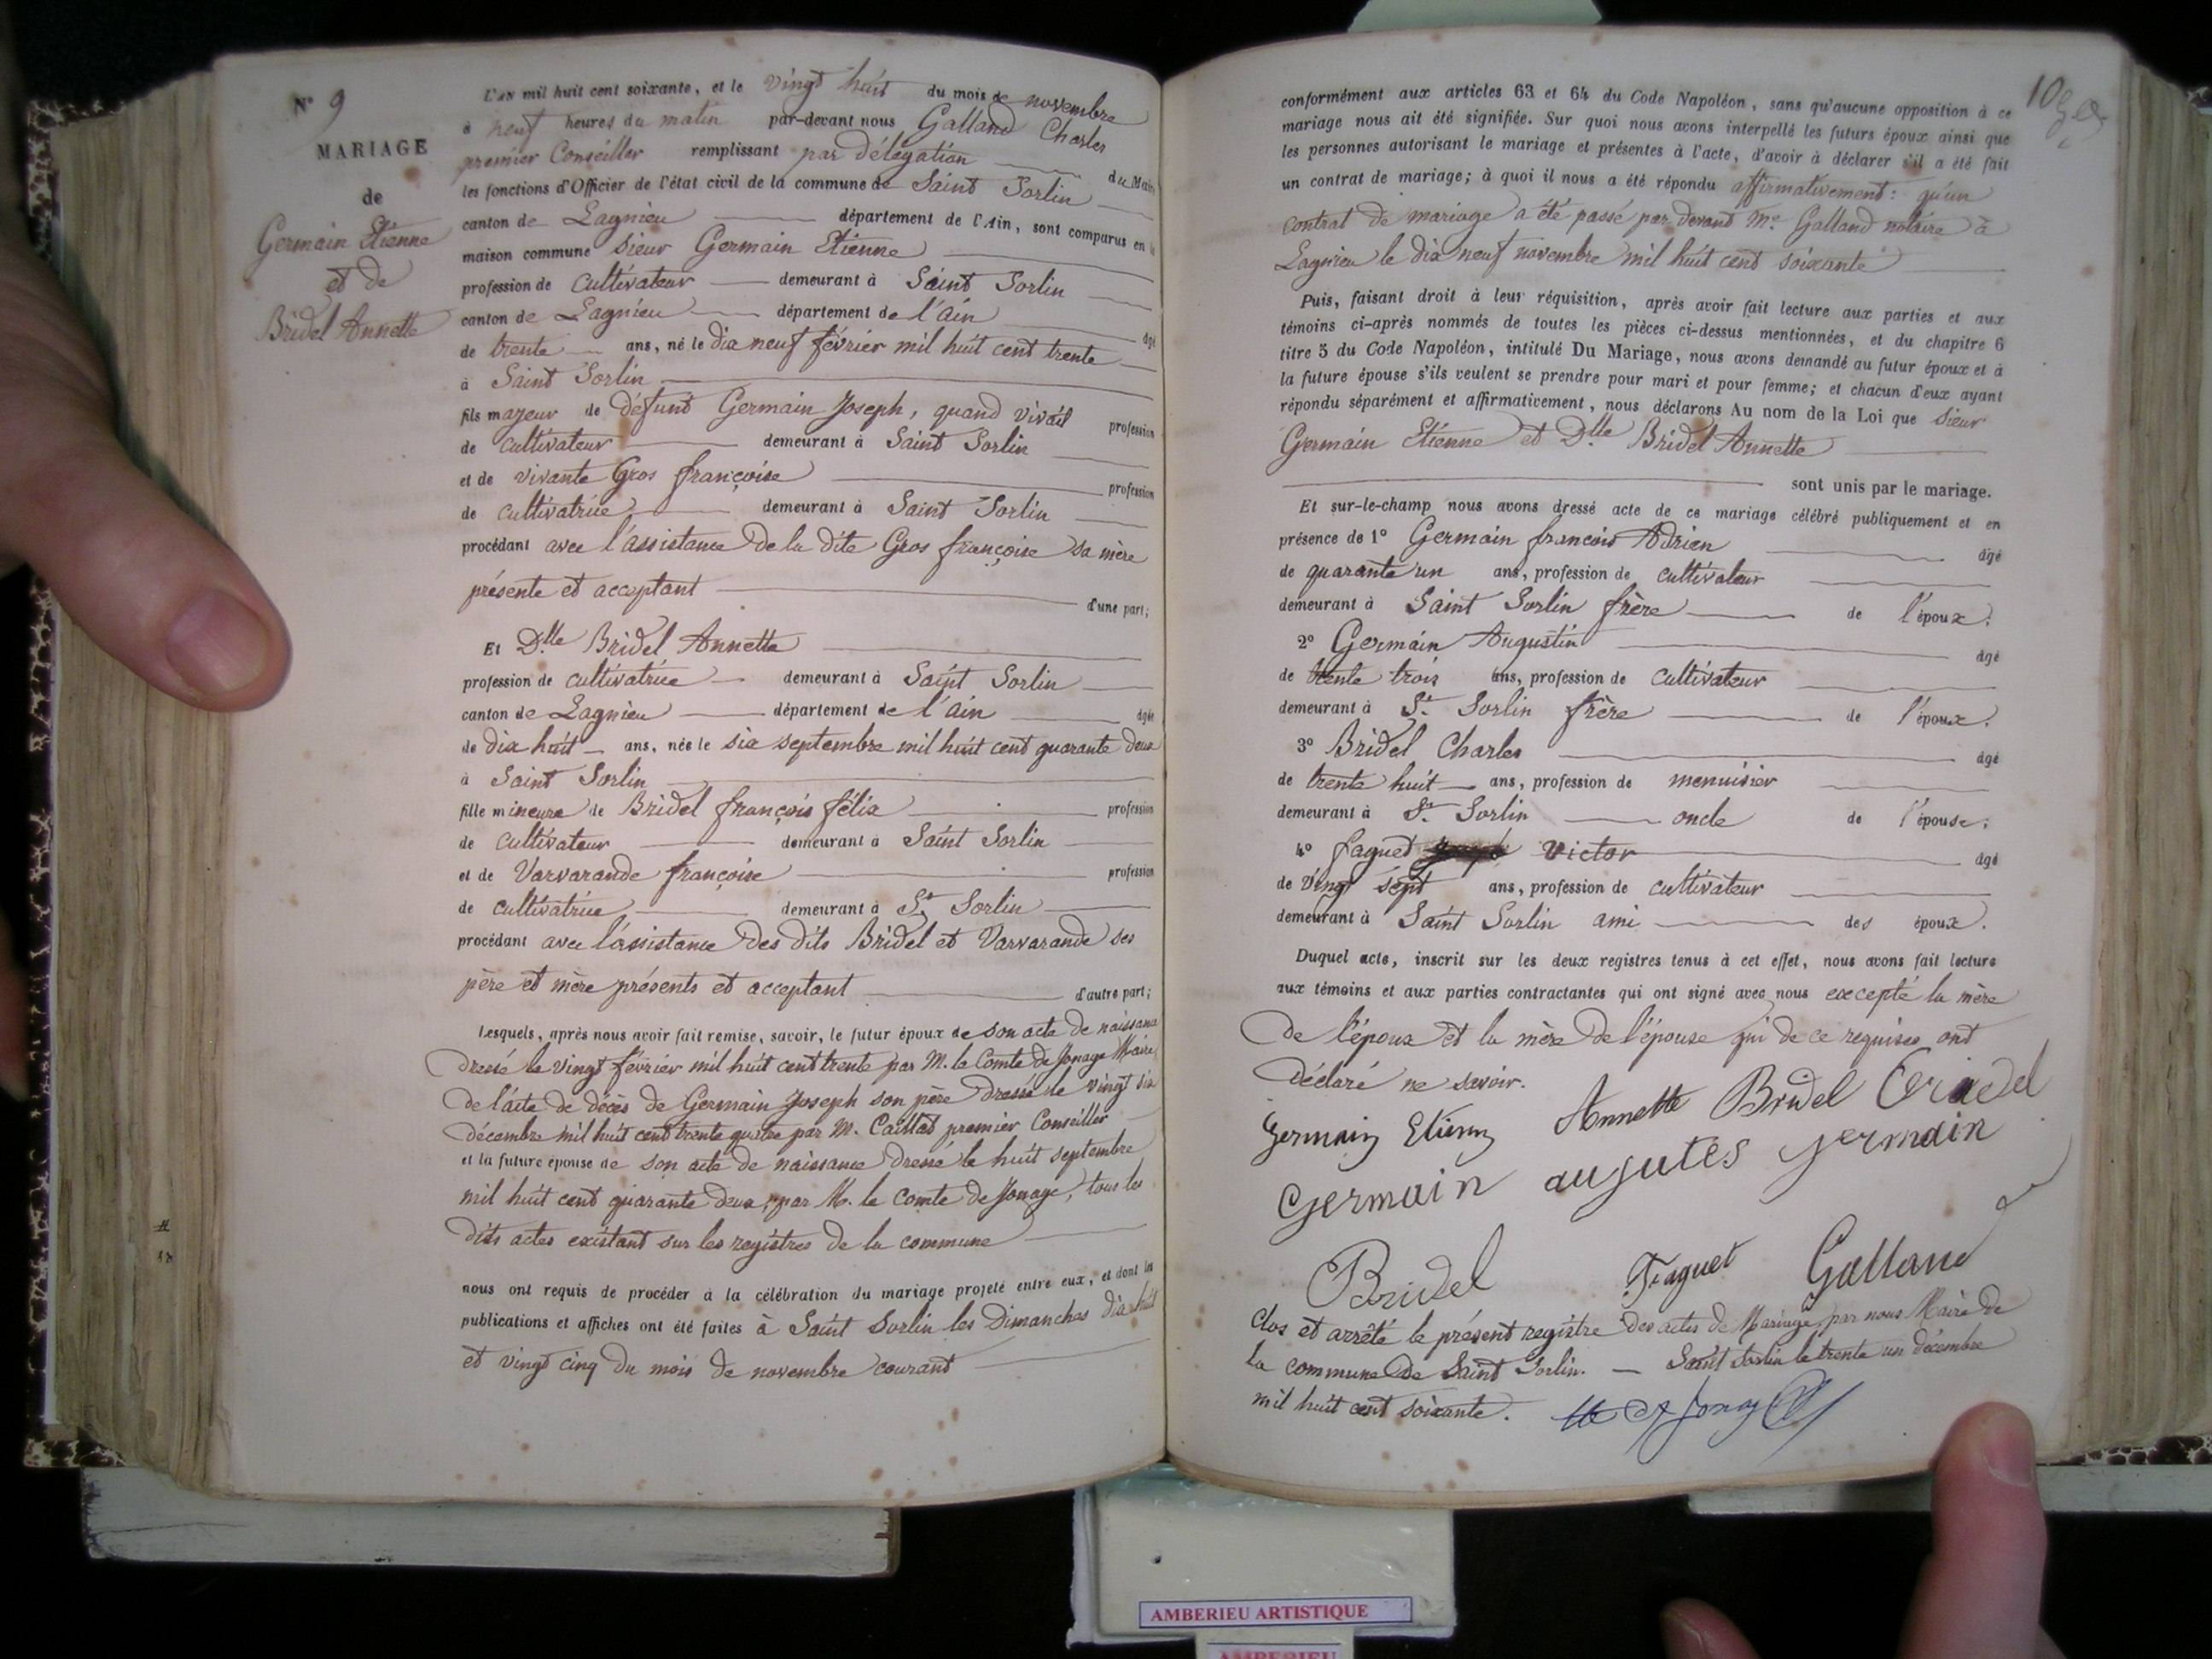 N° 9
MARIAGE
de
Germain Etienne
et de
Bridel Annette
L'AN mil huit cent soixante, et le vingt huit du mois de novembre
à neuf heures du matin par-devant nous Galland Charles
premier Conseiller remplissant par délégation du Maire
les fonctions d'Officier de l'état civil de la commune de Saint Sorlin
canton de Lagnieu département de l'Ain, sont comparus en la
maison commune sieur Germain Etienne
profession de cultivateur demeurant à Saint Sorlin
canton de Lagnieu département de l'ain âgé
de trente ans, né le dix neuf février mil huit cent trente
à Saint Sorlin
fils majeur de défunt Germain Joseph, quand vivait profession
de cultivateur demeurant à Saint Sorlin
et de vivante Gros françoise profession
de cultivatrice demeurant à Saint Sorlin
procédant avec l'assistance de la dite Gros françoise sa mère
présente et acceptant d'une part;
Et Dlle Bridel Annette
profession de cultivatrice demeurant à Saint Sorlin
canton de Lagnieu département de l'ain âgée
de dix huit ans, née le six septembre mil huit cent quarante deux
à Saint Sorlin
fille mineure de Bridel françois félix profession
de cultivateur demeurant à Saint Sorlin
et de Varvarande françoise profession
de cultivatrice demeurant à St Sorlin
procédant avec l'assistance des dits Bridel et Varvarande ses
père et mère présents et acceptant d'autre part;
Lesquels, après nous avoir fait remise, savoir, le futur époux de son acte de naissance
dressé le vingt février mil huit cent trente par M. le Comte de Jonage Maire,
de l'acte de décès de Germain Joseph son père dressé le vingt six
décembre mil huit cent trente quatre par M. Caillat premier Conseiller
et la future épouse de son acte de naissance dressé le huit septembre
mil huit cent quarante deux, par M. le Comte de Jonage, tous les
dits actes existant sur les registres de la commune
nous ont requis de procéder à la célébration du mariage projeté entre eux, et dont les
publications et affiches ont été faites à Saint Sorlin les Dimanches dix huit
et vingt cinq du mois de novembre courant
10
conformément aux articles 63 et 64 du Code Napoléon, sans qu'aucune opposition à ce
mariage nous ait été signifiée. Sur quoi nous avons interpellé les futurs époux ainsi que
les personnes autorisant le mariage et présentes à l'acte, d'avoir à déclarer s'il a été fait
un contrat de mariage; à quoi il nous a été répondu affirmativement: qu'un
contrat de mariage a été passé par devant Me Galland notaire à
Lagnieu le dix neuf novembre mil huit cent soixante
Puis, faisant droit à leur réquisition, après avoir fait lecture aux parties et aux
témoins ci-après nommés de toutes les pièces ci-dessus mentionnées, et du chapitre 6
titre 5 du Code Napoléon, intitulé Du Mariage, nous avons demandé au futur époux et à
la future épouse s'ils veulent se prendre pour mari et pour femme; et chacun d'eux ayant
répondu séparément et affirmativement, nous déclarons Au nom de la Loi que sieur
Germain Etienne et Dlle Bridel Annette
sont unis par le mariage.
Et sur-le-champ nous avons dressé acte de ce mariage célébré publiquement et en
présence de 1° Germain francois Adrien âgé
de quarante un ans, profession de cultivateur
demeurant à Saint Sorlin frère de l'époux;
2° Germain Augustin âgé
de trente trois ans, profession de cultivateur
demeurant à St Sorlin frère de l'époux;
3° Bridel Charles âgé
de trente huit ans, profession de menuisier
demeurant à St Sorlin oncle de l'épouse;
4° faguet Victor âgé
de vingt sept ans, profession de cultivateur
demeurant à Saint Sorlin ami des époux.
Duquel acte, inscrit sur les deux registres tenus à cet effet, nous avons fait lecture
aux témoins et aux parties contractantes qui ont signé avec nous excepté la mère
de l'époux et la mère de l'épouse qui de ce requises ont
déclaré ne savoir.
Germain Etienn Annette Bridel Bridel
germain augutes germain
Bridel Faguet Galland
Clos et arrêté le présent registre des actes de Mariage, par nous Maire de
la commune de Saint Sorlin. — Saint Sorlin le trente un décembre
mil huit cent soixante.
AMBERIEU ARTISTIQUE
AMBERIEU